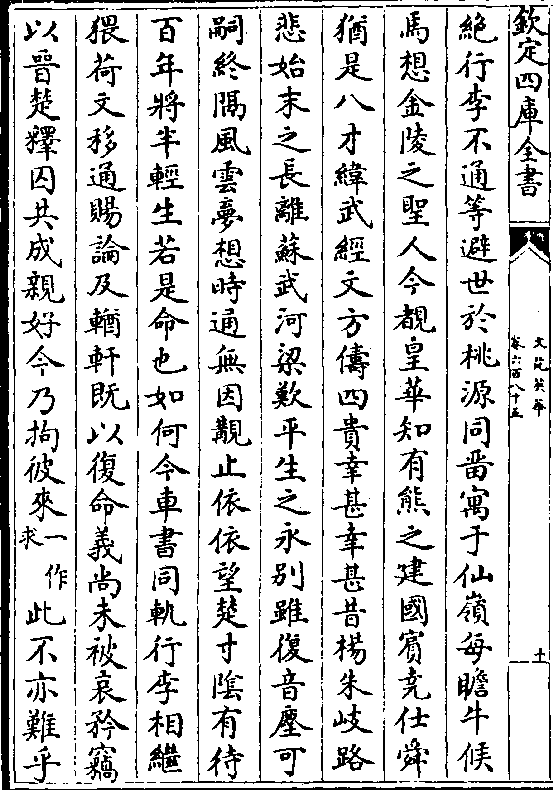 欽定四庫全書
文苑英華
卷六百八十五
十
絶行李不通等避世於桃源同畱寓于仙嶺每瞻牛候
馬想金陵之聖人今覩皇華知有熊之建國賓堯仕舜
猶是八才緯武經文方儔四貴幸甚幸甚昔楊朱岐路
悲始末之長離蘇武河梁歎平生之永别雖復音塵可
嗣終隔風雲夢想時通無因覿止依依望楚寸陰有待
百年將半輕生若是命也如何今車書同軌行李相繼
猥荷文移通賜論及輶軒既以復命義尚未被哀矜竊
以晉楚釋囚共成親好今乃拘彼來一作求此不亦難乎